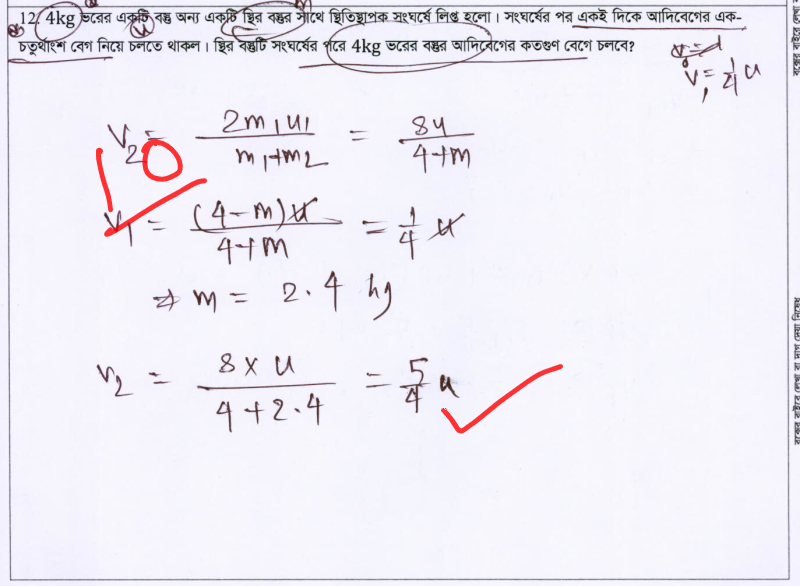 12. 4kg ভরের একটি বস্তু অন্য একটি স্থির বস্তুর সাথে স্থিতিস্থাপক সংঘর্ষে লিপ্ত হলো। সংঘর্ষের পর একই দিকে আদিবেগের এক-
চতুর্থাংশ বেগ নিয়ে চলতে থাকল। স্থির বস্তুটি সংঘর্ষের পরে 4kg ভরের বস্তুর আদিবেগের কতগুণ বেগে চলবে?
v₁ = 1/4 u
v₂ = 2m₁u₁/(m₁+m₂) = 8u/(4+m)
v₁ = (4-m)u/(4+m) = 1/4 u
⇒ m = 2.4 kg
v₂ = 8×u/(4+2.4) = 5/4 u